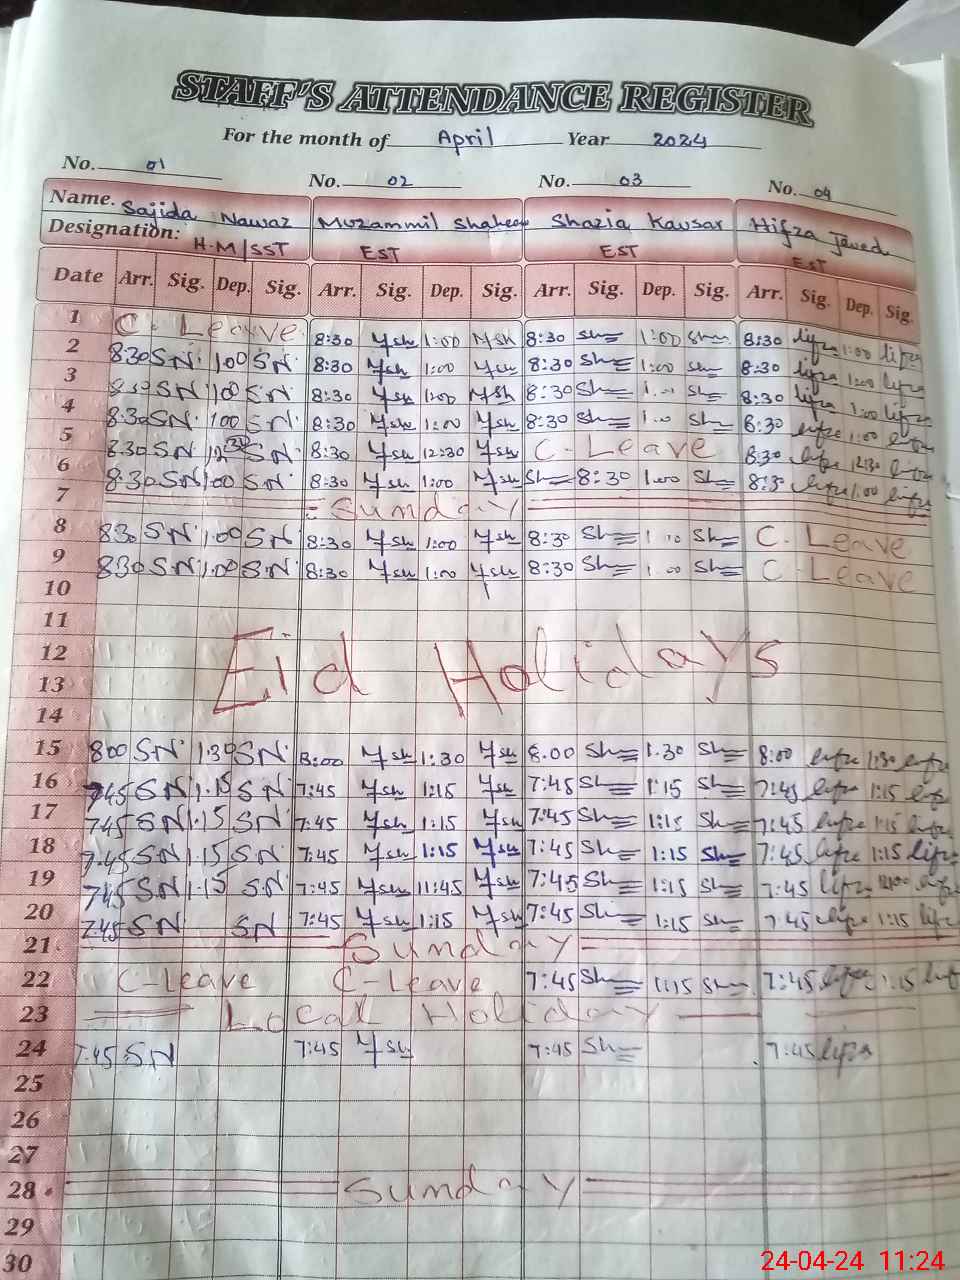 STAFF'S ATTENDANCE REGISTER
For the month of April Year 2024
No. 01 No. 02 No. 03 No. 04
Name. Sajida Nawaz Muzammil Shaheen Shazia Kausar Hifza Javed
Designation: H.M/SST EST EST EST
Date Arr. Sig. Dep. Sig. Arr. Sig. Dep. Sig. Arr. Sig. Dep. Sig. Arr. Sig. Dep. Sig.
1 C. Leavve 8:30 Msh 1:00 Msh 8:30 Sh 1:00 Sh 8:30 hifza 1:00 hifza
2 8.30 SN 1.00 SN 8:30 Msh 1:00 Msh 8:30 Sh 1:00 Sh 8:30 hifza 1:00 hifza
3 8.30 SN 1.00 SN 8:30 Msh 1:00 Msh 8:30 Sh 1.00 Sh 8:30 hifza 1:00 hifza
4 8.30 SN 1.00 SN 8:30 Msh 1:00 Msh 8:30 Sh 1.00 Sh 8:30 hifza 1:00 hifza
5 8.30 SN 12.30 SN 8:30 Msh 12:30 Msh C-Leave 8:30 hifza 12:30 hifza
6 8.30 SN 1.00 SN 8:30 Msh 1:00 Msh Sh 8:30 1.00 Sh 8:30 hifza 1:00 hifza
7 Sunday
8 8.30 SN 1.00 SN 8:30 Msh 1:00 Msh 8:30 Sh 1.00 Sh C. Leave
9 8.30 SN 1.00 SN 8:30 Msh 1:00 Msh 8:30 Sh 1.00 Sh C-Leave
10
11
12 Eid Holidays
13
14
15 8.00 SN 1.30 SN 8:00 Msh 1:30 Msh 8.00 Sh 1.30 Sh 8:00 hifza 1:30 hifza
16 7.45 SN 1.15 SN 7:45 Msh 1:15 Msh 7:45 Sh 1:15 Sh 7:45 hifza 1:15 hifza
17 7.45 SN 1.15 SN 7:45 Msh 1:15 Msh 7:45 Sh 1:15 Sh 7:45 hifza 1:15 hifza
18 7.45 SN 1.15 SN 7:45 Msh 1:15 Msh 7:45 Sh 1:15 Sh 7:45 hifza 1:15 hifza
19 7.45 SN 1.15 SN 7:45 Msh 11:45 Msh 7:45 Sh 1:15 Sh 7:45 hifza hifza
20 7.45 SN SN 7:45 Msh 1:15 Msh 7:45 Sh 1:15 Sh 7:45 hifza 1:15 hifza
21 Sunday
22 C-Leave C-Leave 7:45 Sh 1:15 Sh 7:45 hifza 1:15 hifza
23 Local Holiday
24 7.45 SN 7:45 Msh 7:45 Sh 7:45 hifza
25
26
27
28 Sunday
29
30
24-04-24 11:24